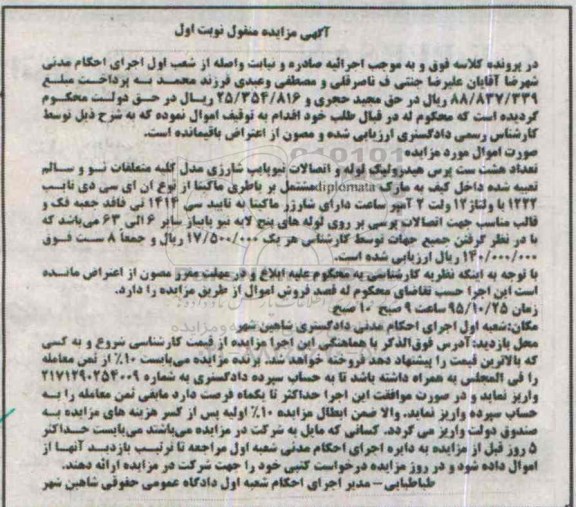 آگهی مزایده منقول نوبت اول
در پرونده کلاسه فوق و به موجب اجرائیه صادره و نیابت واصله از شعب اول اجرای احکام مدنی
شهرضا آقایان علیرضا جنتی ف ناصرقلی و مصطفی وعیدی فرزند محمد به پرداخت مبلغ
۸۸/۸۳۷/۳۳۹ ریال در حق مجید حجری و ۲۵/۳۵۴/۸۱۶ ریال در حق دولت محکوم
گردیده است که محکوم له در قبال طلب خود اقدام به توقیف اموال نموده که به شرح ذیل توسط
کارشناس رسمی دادگستری ارزیابی شده و مصون از اعتراض باقیمانده است.
صورت اموال مورد مزایده
تعداد هشت ست پرس هیدرولیک لوله و اتصالات نیوپایپ شارژی مدل کلیه متعلقات نو و سالم
تعبیه شده داخل کیف به مارک diplomata مشتمل بر باطری ماکیتا از نوع ان ای سی دی تایپ
۱۲۲۲ با ولتاژ ۱۲ ولت ۲ آمپر ساعت دارای شارژر ماکیتا به تایپ سی ۱۴۱۴ تی فاقد جعبه فک و
قالب مناسب جهت اتصالات پرسی بر روی لوله های پنج لایه نیو پایپاز سایز ۶ الی ۶۳ می‌باشد که
با در نظر گرفتن جمیع جهات توسط کارشناس هر یک ۱۷/۵۰۰/۰۰۰ ریال و جمعاً ۸ ست فوق
۱۴۰/۰۰۰/۰۰۰ ریال ارزیابی شده است.
با توجه به اینکه نظریه کارشناسی به محکوم علیه ابلاغ و در مهلت مقرر مصون از اعتراض مانده
است این اجرا حسب تقاضای محکوم له قصد فروش اموال از طریق مزایده را دارد.
زمان ۹۵/۱۰/۲۵ ساعت ۹ صبح ۱۰ صبح
مکان: شعبه اول اجرای احکام مدنی دادگستری شاهین شهر
محل بازدید: آدرس فوق‌الذکر با هماهنگی این اجرا مزایده از قیمت کارشناسی شروع و به کسی
که بالاترین قیمت را پیشنهاد دهد فروخته خواهد شد. برنده مزایده می‌بایست ۱۰٪ از ثمن معامله
را فی المجلس به همراه داشته باشد تا به حساب سپرده دادگستری به شماره ۲۱۷۱۲۹۰۲۵۴۰۰۹
واریز نماید و در صورت موافقت این اجرا حداکثر تا یکماه فرصت دارد مابقی ثمن معامله را به
حساب سپرده واریز نماید. والا ضمن ابطال مزایده ۱۰٪ اولیه پس از کسر هزینه های مزایده به
صندوق دولت واریز می گردد. کسانی که مایل به شرکت در مزایده می‌باشند می‌بایست حداکثر
۵ روز قبل از مزایده به دایره اجرای احکام مدنی شعبه اول مراجعه تا ترتیب بازدید آنها از
اموال داده شود و در روز مزایده درخواست کتبی خود را جهت شرکت در مزایده ارائه دهند.
طباطبایی – مدیر اجرای احکام شعبه اول دادگاه عمومی حقوقی شاهین شهر